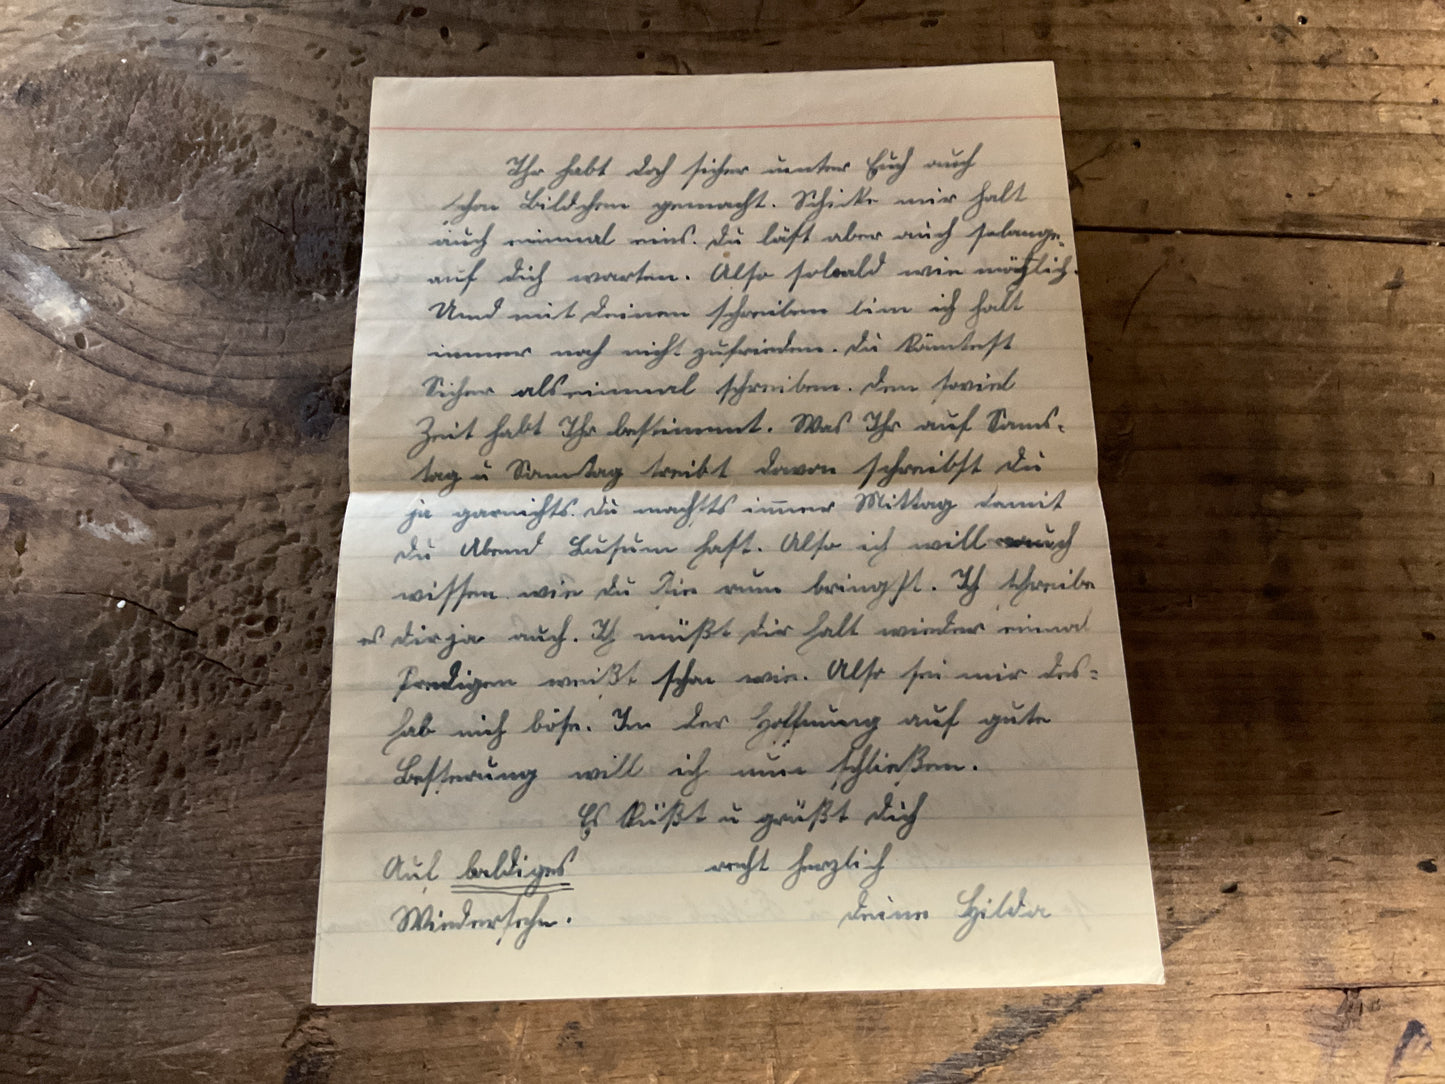 Ihr habt doch sicher unter Euch auch
schon Bildchen gemacht. Schicke mir halt
auch einmal eins. Du läst aber auch solange
auf dich warten. Also sobald wie möglich.
Und mit deinem schreiben bin ich halt
immer noch nicht zufrieden. Du könntest
Sicher als einmal schreiben. Denn soviel
Zeit habt Ihr bestimmt. Was Ihr auf Sams-
tag u Sonntag treibt davon schreibst Du
ja garnichts. Du machsts immer Mittag damit
Du Abend hast. Also ich will auch
wissen wie Du sie rum bringst. Ich schreibe
es dir ja auch. Ich müßt dir halt wieder einmal
Predigen weißt schon wie. Also sei mir des-
hab nich böse. In der Hoffnung auf gute
Besserung will ich nun schließen.
Es küßt u grüßt Dich
recht herzlich
Auf baldiges
Wiedersehn.
deine Hilda